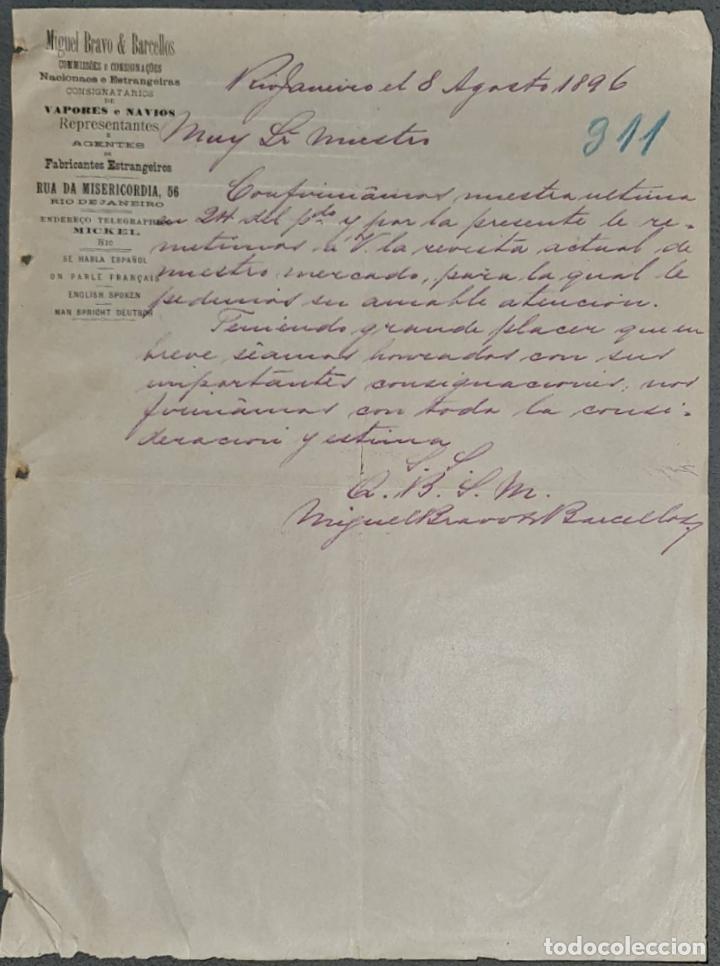 Miguel Bravo & Barcellos
COMMISSÕES e CONSIGNAÇÕES
Nacionaes e Estrangeiras
CONSIGNATARIOS
DE
VAPORES e NAVIOS
Representantes
E
AGENTES
DE
Fabricantes Estrangeiros
RUA DA MISERICORDIA, 56
RIO DE JANEIRO
ENDEREÇO TELEGRAPHICO
MICKEL
RIO
SE HABLA ESPAÑOL
ON PARLE FRANÇAIS
ENGLISH SPOKEN
MAN SPRICHT DEUTSCH
Rio Janeiro el 8 Agosto 1896
311
Muy Sr nuestro
Confirmâmos nuestra ultima
en 24 del pdo y por la presente le re-
metimos a V. la revista actual de
nuestro mercado, para la qual le
pedimos su amable atención.
Teniendo grande placer que en
breve sêamos honrados con sus
importantes consignaciones, nos
firmâmos con toda la consi-
deracion y estima
S. S.
Q. B. S. M.
Miguel Bravo & Barcellos
todocoleccion